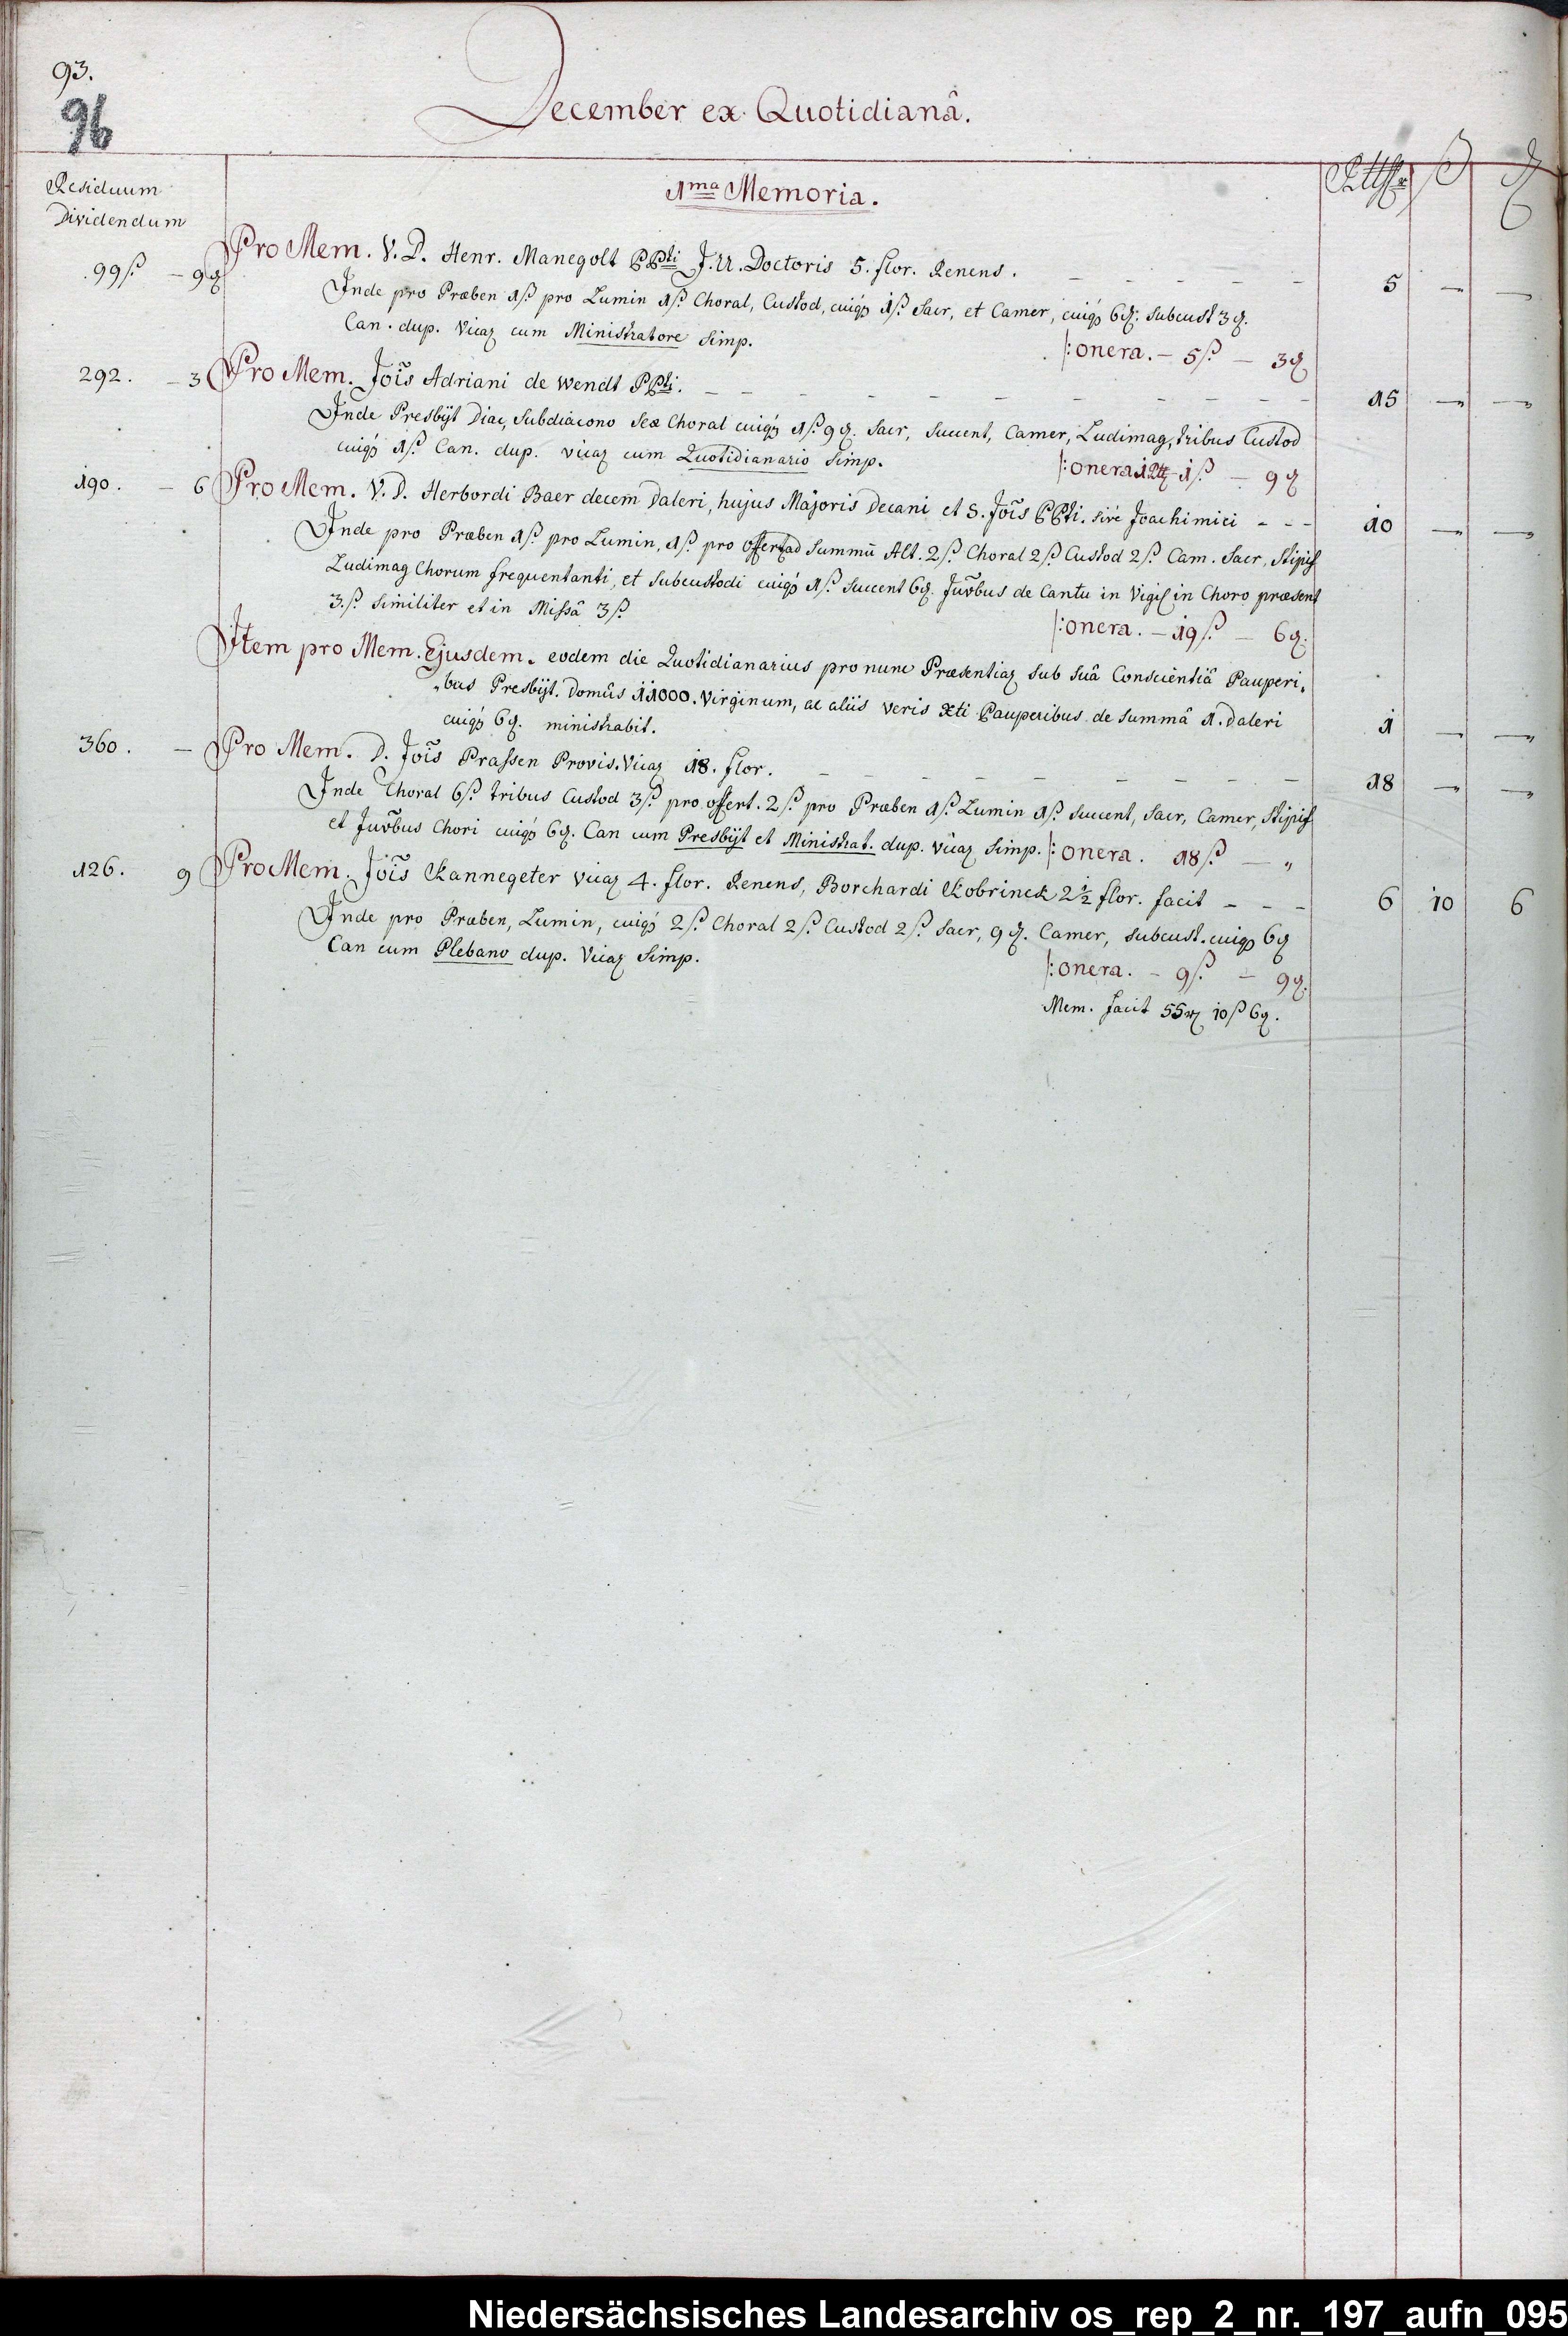 93.
96
December ex Quotidianâ.
Residuum
Dividendum
1ma Memoria.
Rthlr ß ₰
99ß. – 9₰ Pro Mem. V. D. Henr. Manegolt PPti J. U. Doctoris 5. flor. Renens. – – – – – 5 – –
Inde pro Præben 1ß. pro Lumin 1ß. Choral, Custod, cuiq́ 1ß. Sacr, et Camer, cuiq́ 6₰. Subcust 3₰.
Can. dup. Vicaz cum Ministratore Simp. /: onera. – 5ß. – 3₰
292. – 3 Pro Mem. Jois̃ Adriani de Wendt PPti. – – – – – – – – – – 15 – –
Inde Presbÿt Diac, Subdiacono Seæ Choral cuiq́ 1ß. 9₰. Sacr, Succent, Camer, Ludimag, tribus Custod
cuiq́ 1ß. Can. dup. vicaz cum Quotidianario Simp. /: onera 1 Rtz 1ß – 9₰
190. – 6 Pro Mem. V. D. Herbordi Baer decem Daleri, hujus Majoris Decani et S. Jois̃ PPti. sivè Joachimici – – – 10 – –
Inde pro Præben 1ß. pro Lumin, 1ß. pro offert ad Summũ Alt. 2ß. Choral 2ß. Custod 2ß. Cam. Sacr, Stipif
Ludimag Chorum frequentanti, et Subcustodi cuiq́ 1ß. Succent 6₰. Jur̃bus de Cantu in Vigil in Choro præsent
3.ß. Similiter et in Missâ 3ß. /: onera. – 19ß. – 6₰.
Item pro Mem. Ejusdem. eodem die Quotidianarius pro nunc Præsentiaz sub suâ Conscientiâ Pauperi„
„bus Presbÿt. Domûs 11000. Virginum, ac aliis veris Xti Pauperibus de Summâ 1. Daleri
cuiq́ 6₰. ministrabit. 1 – –
360. – Pro Mem. D. Jois̃ Prassen Provis. Vicaz 18. flor. – – – – – – – – – 18 – –
Inde Choral 6ß. tribus Custod 3ß. pro offert. 2ß. pro Præben 1ß. Lumin 1ß. Succent, Sacr, Camer, Stipif
et Jur̃bus Chori cuiq́ 6₰. Can cum Presbÿt et Ministrat. dup. vicaz Simp. /: onera. 18ß. – „
126. 9 Pro Mem. Jois̃ Kannegeter vicaz 4. flor. Renens, Borchardi Kobrinck 2½ flor. facit – – – 6 10 6
Inde pro Præben, Lumin, cuiq́ 2ß. Choral 2ß. Custod 2ß. Sacr, 9₰. Camer, subcust. cuiq́ 6₰
Can cum Plebano dup. Vicaz Simp. /: onera. – 9ß. – 9₰.
Mem. facit 55 rz 10ß 6₰.
Niedersächsisches Landesarchiv os_rep_2_nr._197_aufn_095